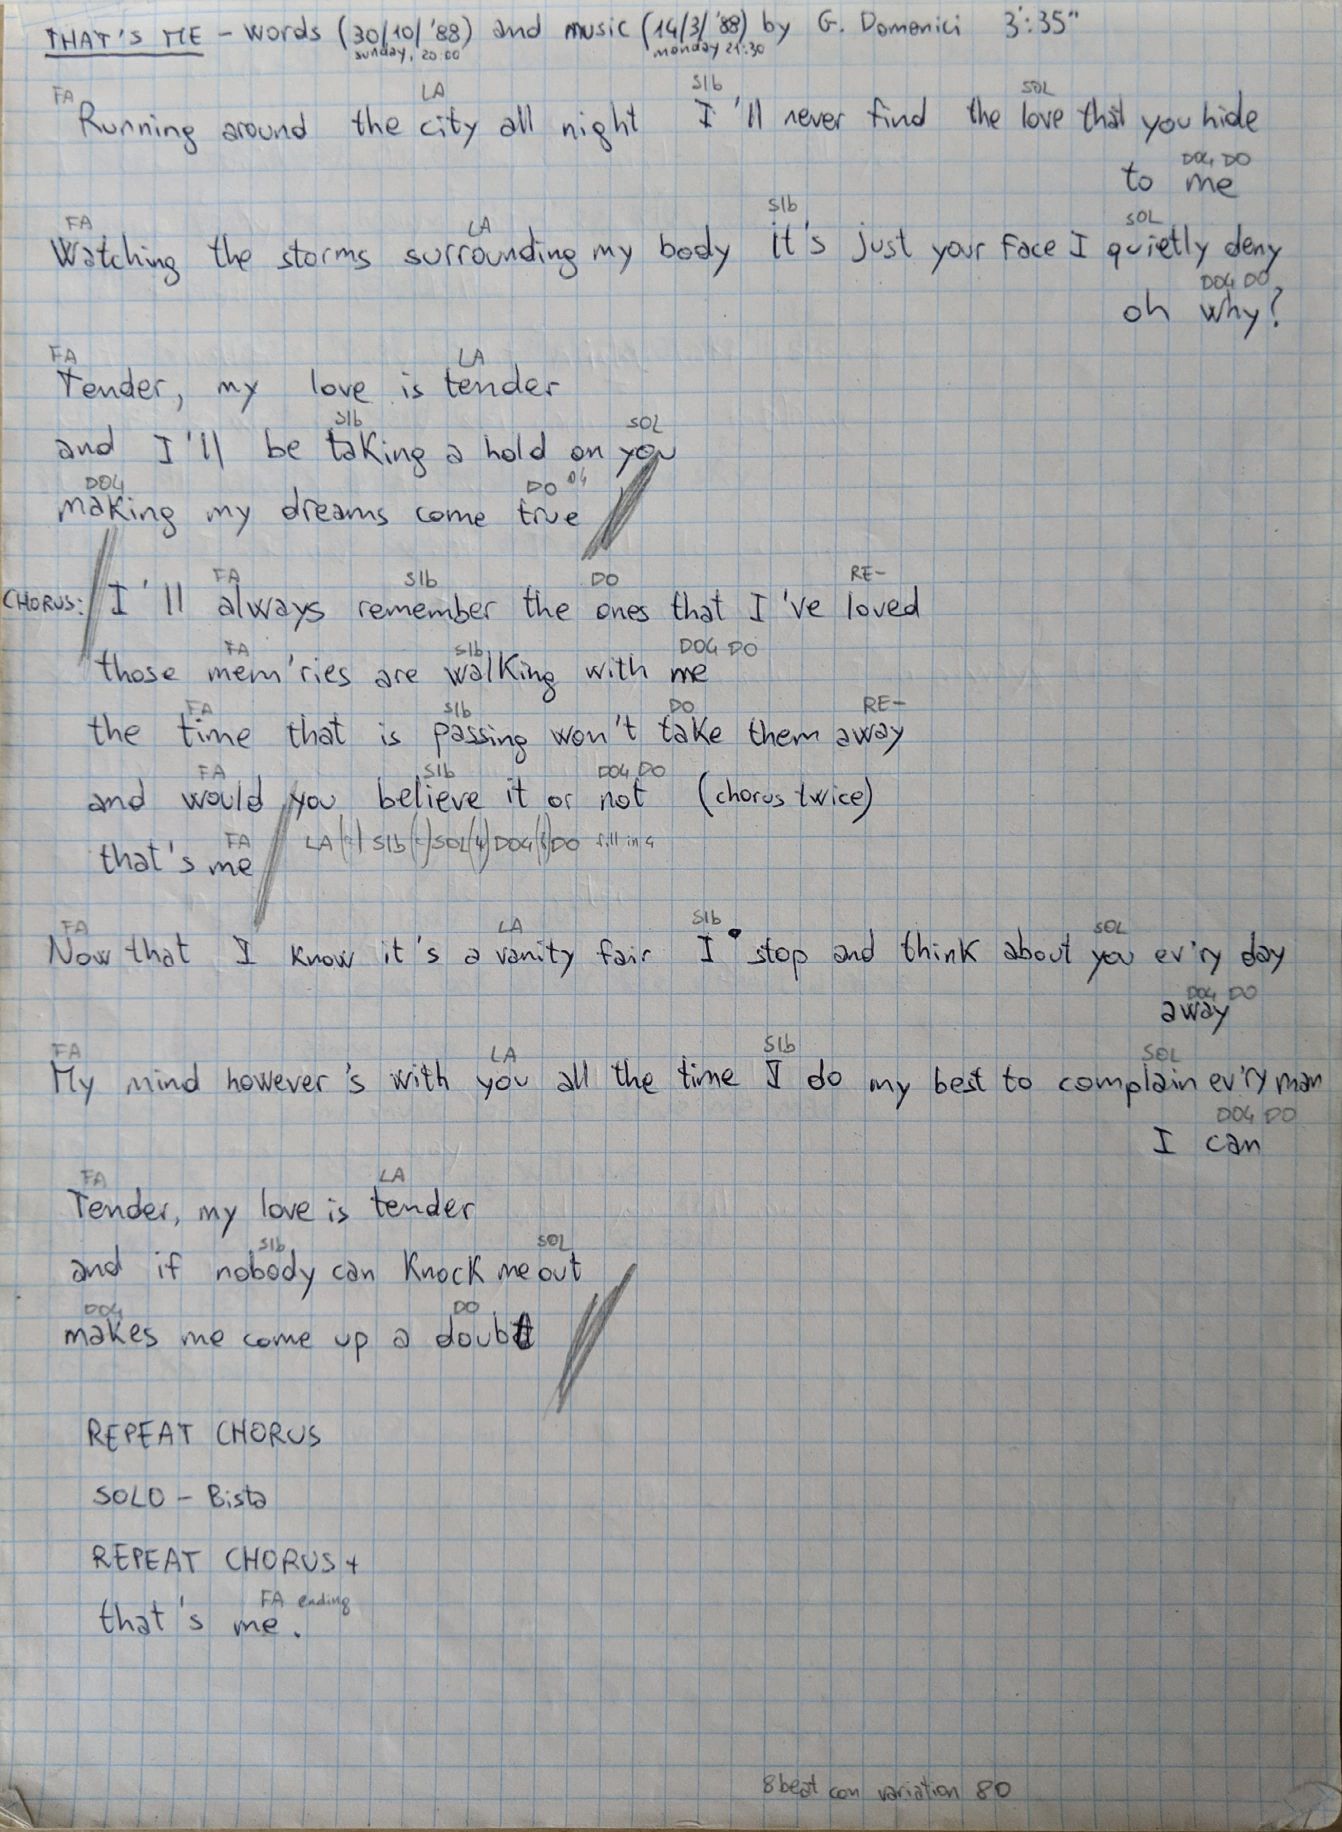 THAT'S ME - words (30/10/'88) and music (14/3/'88) by G. Domenici 3':35"
sunday, 20:00 monday 21:30
FA LA SIb SOL
Running around the city all night I'll never find the love that you hide
DO4 DO
to me
FA LA SIb SOL
Watching the storms surrounding my body it's just your face I quietly deny
DO4 DO
oh why?
FA LA
Tender, my love is tender
SIb SOL
and I'll be taking a hold on you
DO4 DO
making my dreams come true
FA SIb DO RE-
CHORUS: I'll always remember the ones that I've loved
FA SIb DO4 DO
those mem'ries are walking with me
FA SIb DO RE-
the time that is passing won't take them away
FA SIb DO4 DO
and would you believe it or not (chorus twice)
FA LA SIb SOL(4) DO4 DO fill in 4
that's me
FA LA SIb SOL
Now that I know it's a vanity fair I stop and think about you ev'ry day
DO4 DO
away
FA LA SIb SOL
My mind however's with you all the time I do my best to complain ev'ry man
DO4 DO
I can
FA LA
Tender, my love is tender
SIb SOL
and if nobody can knock me out
DO4 DO
makes me come up a doubt
REPEAT CHORUS
SOLO - Bista
REPEAT CHORUS +
FA ending
that's me.
8 beat con variation 80